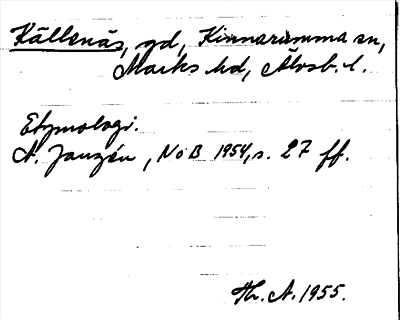 Källenäs, gd, Kinnarumma sn,
Marks hd, Älvsb. l.
Etymologi.
A. Janzén, NoB 1954, s. 27 ff.
Th. A. 1955.